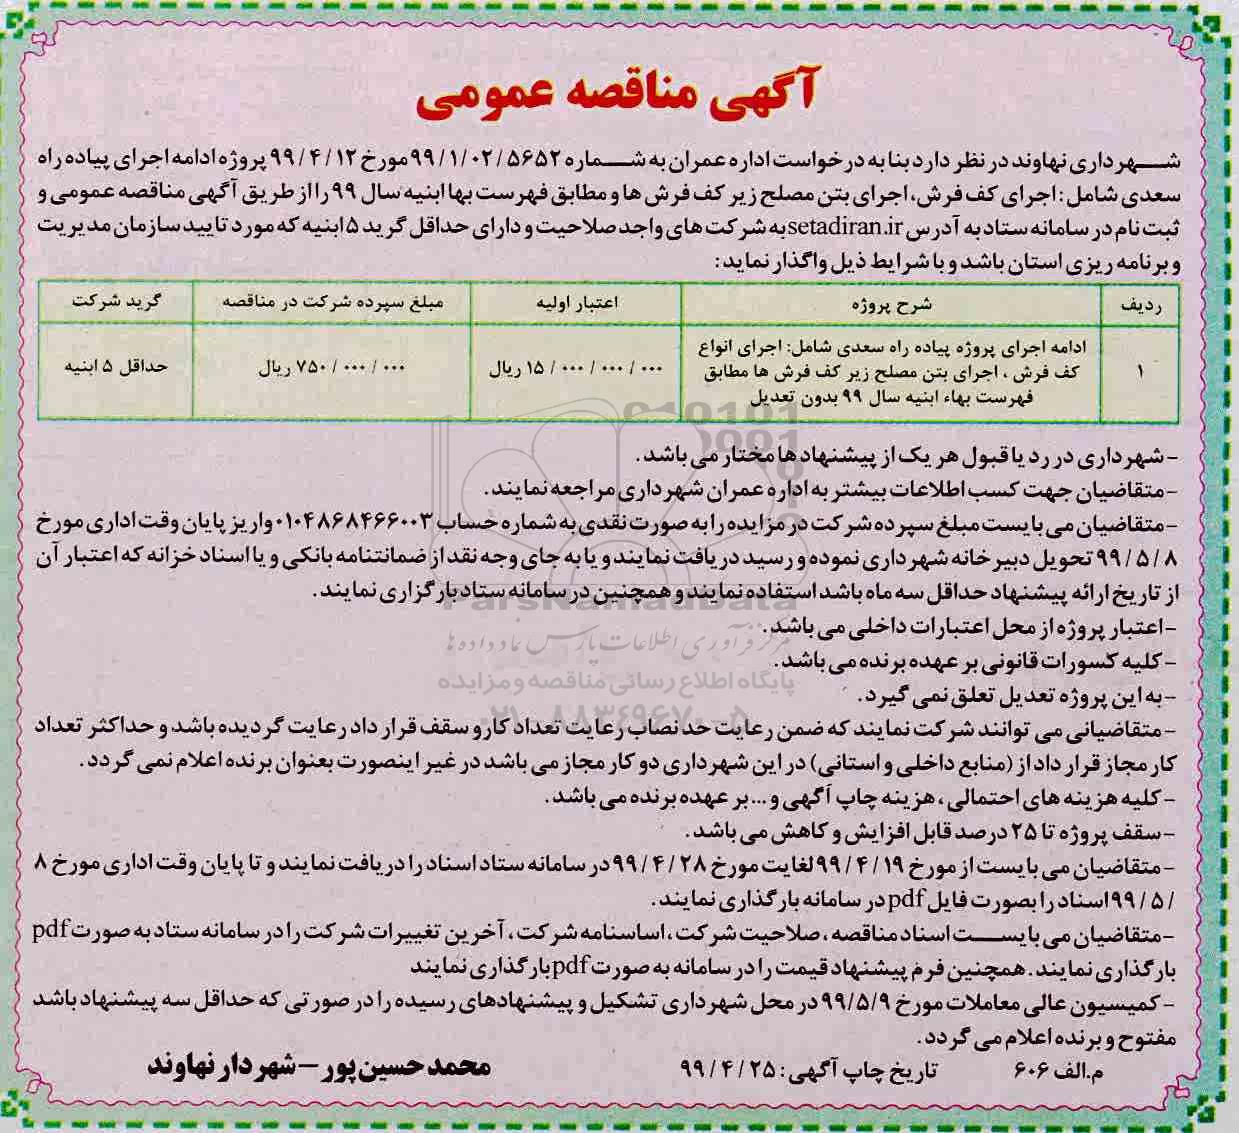 آگهی مناقصه عمومی
شهرداری نهاوند در نظر دارد بنا به درخواست اداره عمران به شماره ۹۹/۱/۰۲/۵۶۵۲ مورخ ۹۹/۴/۱۲ پروژه ادامه اجرای پیاده راه
سعدی شامل: اجرای کف فرش، اجرای بتن مصلح زیر کف فرش ها و مطابق فهرست بها ابنیه سال ۹۹ را از طریق آگهی مناقصه عمومی و
ثبت نام در سامانه ستاد به آدرس setadiran.ir به شرکت های واجد صلاحیت و دارای حداقل گرید ۵ ابنیه که مورد تایید سازمان مدیریت
و برنامه ریزی استان باشد و با شرایط ذیل واگذار نماید:
ردیف شرح پروژه اعتبار اولیه مبلغ سپرده شرکت در مناقصه گرید شرکت
ادامه اجرای پروژه پیاده راه سعدی شامل: اجرای انواع
۱ کف فرش ، اجرای بتن مصلح زیر کف فرش ها مطابق ۱۵/۰۰۰/۰۰۰/۰۰۰ ریال ۷۵۰/۰۰۰/۰۰۰ ریال حداقل ۵ ابنیه
فهرست بهاء ابنیه سال ۹۹ بدون تعدیل
- شهرداری در رد یا قبول هر یک از پیشنهادها مختار می باشد.
- متقاضیان جهت کسب اطلاعات بیشتر به اداره عمران شهرداری مراجعه نمایند.
- متقاضیان می بایست مبلغ سپرده شرکت در مزایده را به صورت نقدی به شماره حساب ۰۱۰۴۸۶۸۴۶۶۰۰۳ واریز پایان وقت اداری مورخ
۹۹/۵/۸ تحویل دبیرخانه شهرداری نموده و رسید دریافت نمایند و یا به جای وجه نقد از ضمانتنامه بانکی و یا اسناد خزانه که اعتبار آن
از تاریخ ارائه پیشنهاد حداقل سه ماه باشد استفاده نمایند و همچنین در سامانه ستاد بارگزاری نمایند.
ParsNamadData
- اعتبار پروژه از محل اعتبارات داخلی می باشد.
مرکز فرآوری اطلاعات پارس نماد داده ها
- کلیه کسورات قانونی بر عهده برنده می باشد.
پایگاه اطلاع رسانی مناقصه و مزایده
- به این پروژه تعدیل تعلق نمی گیرد.
۰۲۱-۸۸۳۴۹۶۷۰-۵
- متقاضیانی می توانند شرکت نمایند که ضمن رعایت حد نصاب رعایت تعداد کار و سقف قرار داد رعایت گردیده باشد و حداکثر تعداد
کار مجاز قرار داد از (منابع داخلی و استانی) در این شهرداری دو کار مجاز می باشد در غیر اینصورت بعنوان برنده اعلام نمی گردد.
- کلیه هزینه های احتمالی، هزینه چاپ آگهی و... بر عهده برنده می باشد.
- سقف پروژه تا ۲۵ درصد قابل افزایش و کاهش می باشد.
- متقاضیان می بایست از مورخ ۹۹/۴/۱۹ لغایت مورخ ۹۹/۴/۲۸ در سامانه ستاد اسناد را دریافت نمایند و تا پایان وقت اداری مورخ ۸
/۹۹/۵ اسناد را بصورت فایل pdf در سامانه بارگذاری نمایند.
- متقاضیان می بایست اسناد مناقصه، صلاحیت شرکت، اساسنامه شرکت، آخرین تغییرات شرکت را در سامانه ستاد به صورت pdf
بارگذاری نمایند. همچنین فرم پیشنهاد قیمت را در سامانه به صورت pdf بارگذاری نمایند
- کمیسیون عالی معاملات مورخ ۹۹/۵/۹ در محل شهرداری تشکیل و پیشنهادهای رسیده را در صورتی که حداقل سه پیشنهاد باشد
مفتوح و برنده اعلام می گردد.
م.الف ۶۰۶ تاریخ چاپ آگهی: ۹۹/۴/۲۵ محمد حسین پور - شهردار نهاوند